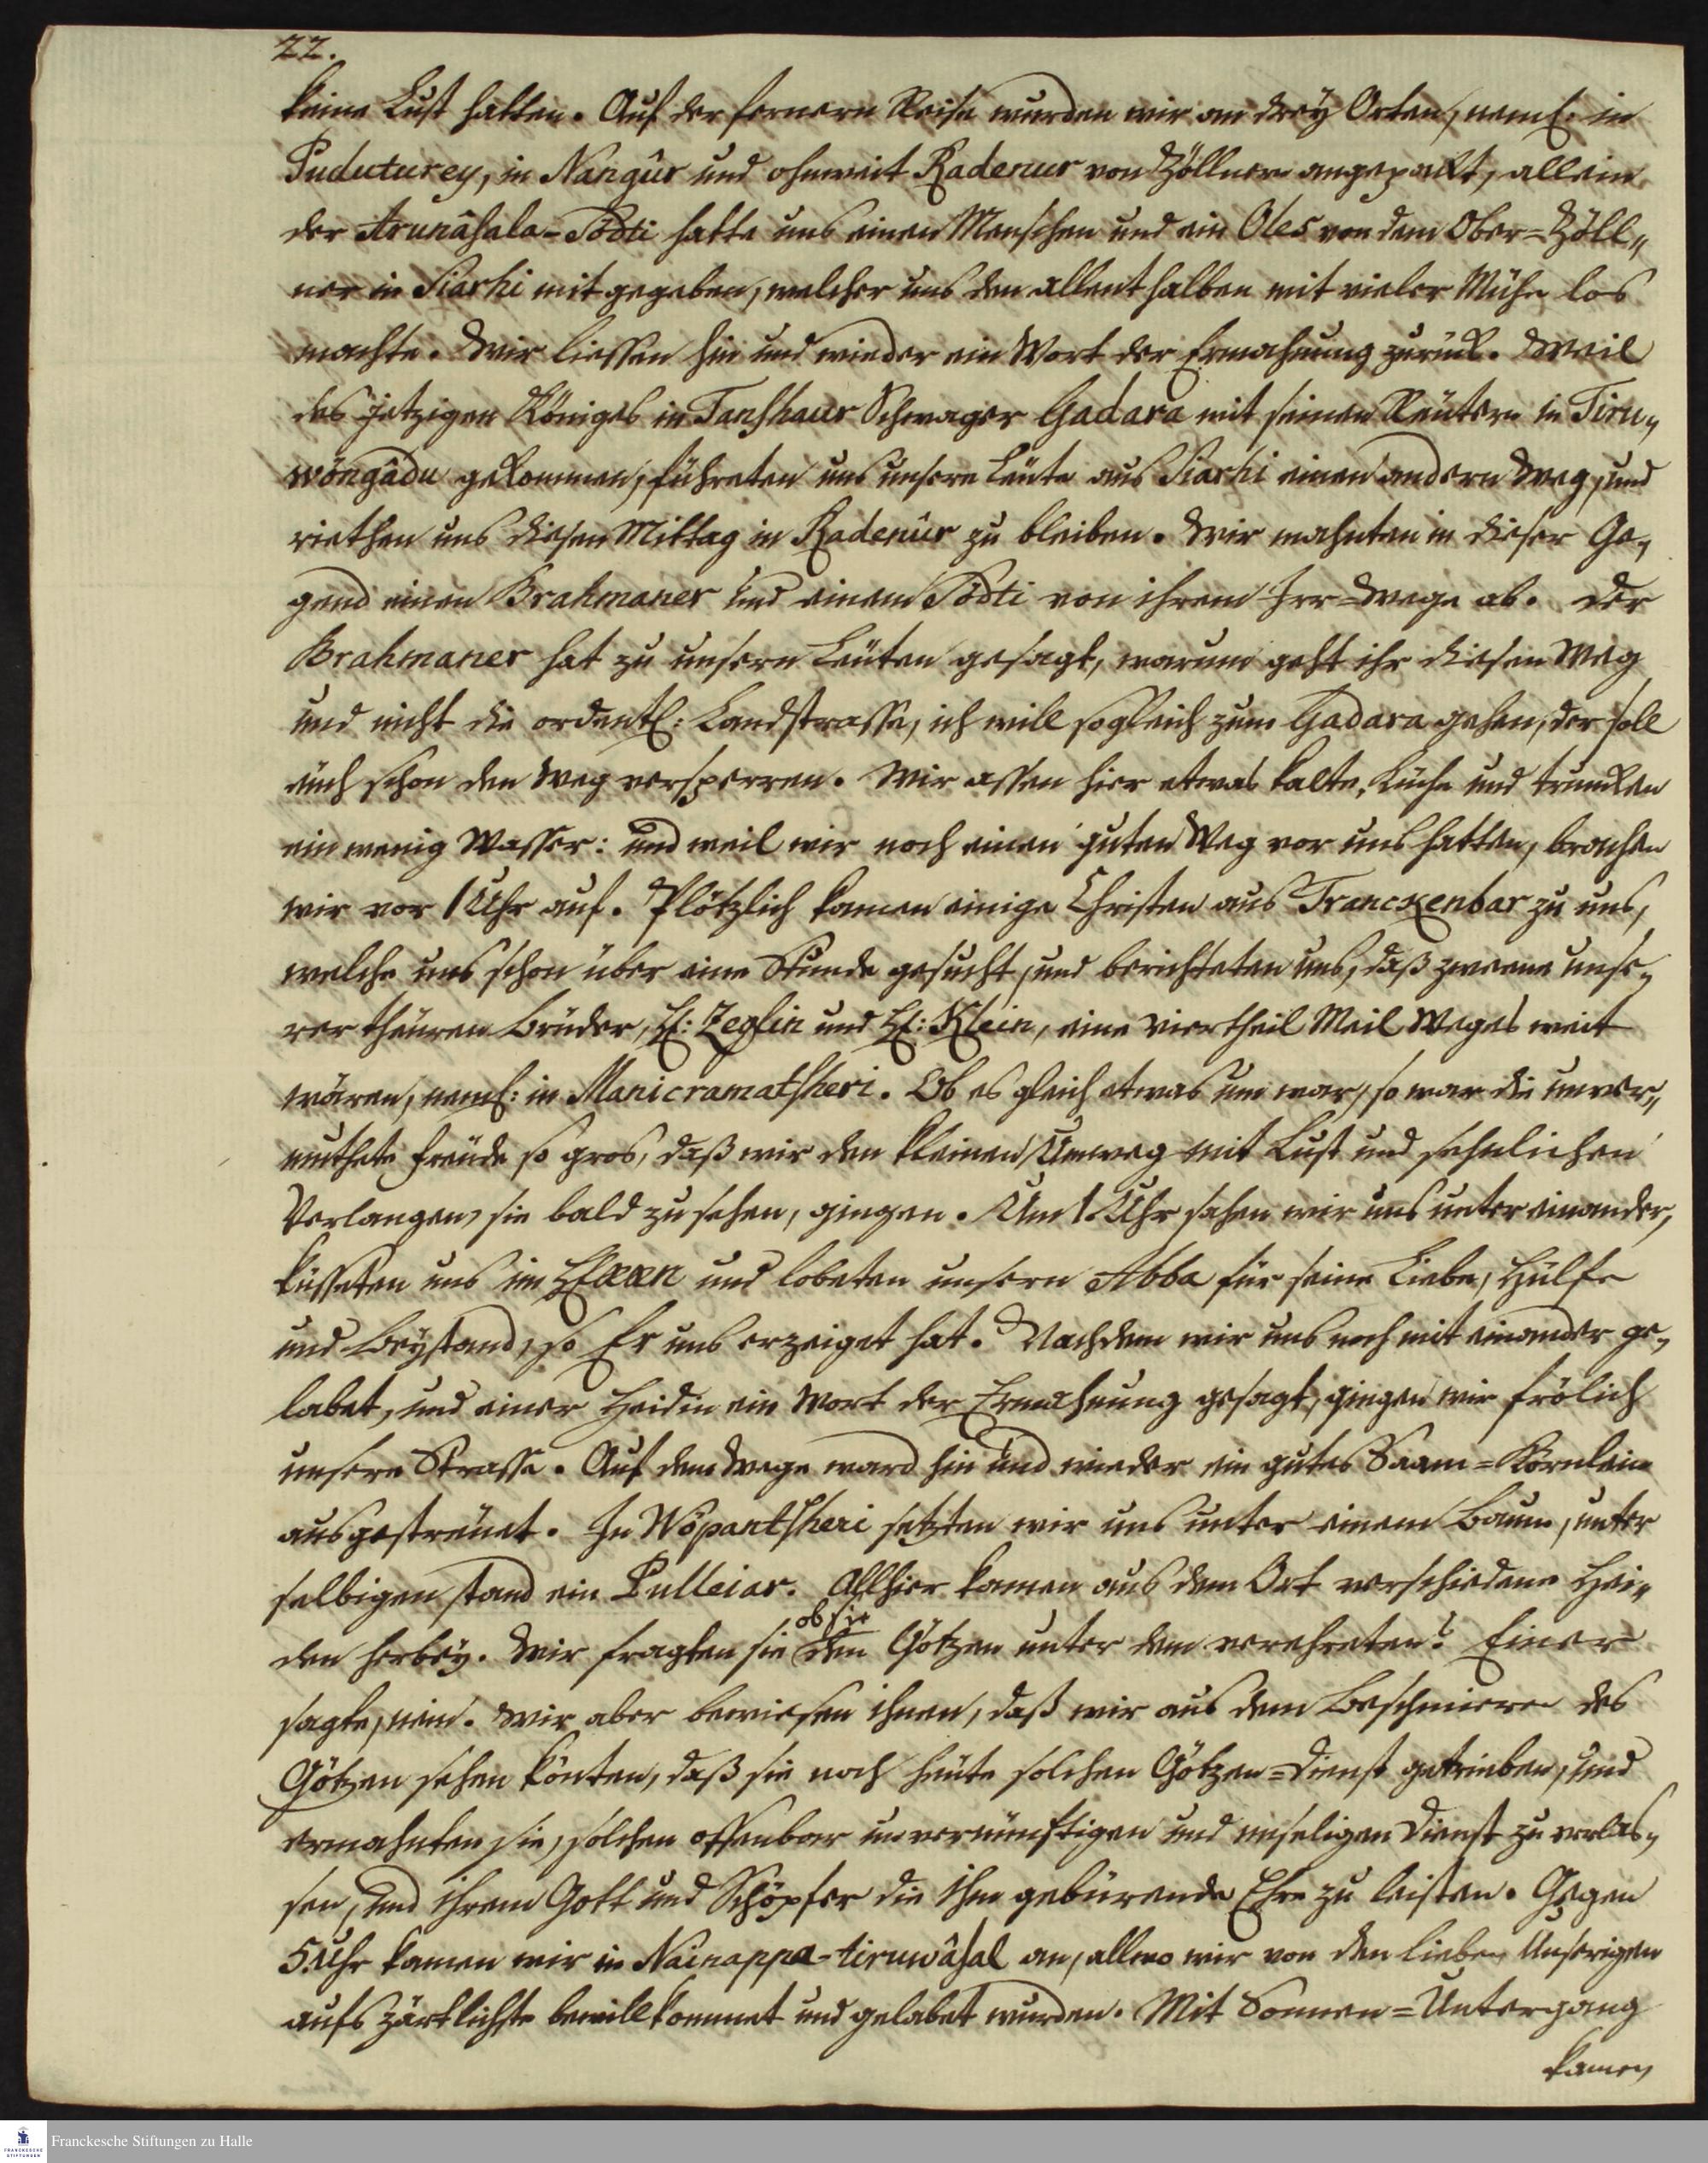 22.
keine Lust hatten. Auf der fernern Reise wurden wir an drey Orten, neml. in
Puduturey, in Nangûr und ohnweit Kadenur von Zöllnern angepackt, allein
der Arunâsala-Södti hatte uns einen Menschen und ein Oles von dem Ober=Zöll„
ner in Siarhi mit gegeben, welcher uns den allenthalben mit vieler Mühe los
machte. Wir liessen hin und wieder ein Wort der Ermahnung zurück. Weil
des jetzigen Königes in Tanshaur Schwager Gadara mit seinen Reütern in Tiru„
wöngâdu gekommen, führeten uns unsere Leüte aus Siarhi einen andern Weg, und
riethen uns diesen Mittag in Kadenûr zu bleiben. Wir mahnten in dieser Ge„
gend einen Brahmaner und einem Södti von ihrem Irr=Wege ab. Der
Brahmaner hat zu unsern Leüten gesagt, warum geht ihr diesen Weg
und nicht die ordentl: Landstrasse, ich will sogleich zum Gadara gehen, der soll
eüch schon den Weg versperren. Wir assen hier etwas kalte Küche und truncken
ein wenig Wasser: und weil wir noch einen guten Weg vor uns hatten, brachen
wir vor 1 Uhr auf. Plötzlich kamen einige Christen aus Tranckenbar zu uns,
welche uns schon über eine Stunde gesucht, und berichteten uns, daß zweene unse„
rer theüren Brüder, H: Zeglin und H: Klein, eine viertheil Meil Weges weit
wären, neml: in Manicramatsheri. Ob es gleich etwas um war, so war die unver„
muthete Freüde so gros, daß wir den kleinen Umweg mit Lust und sehnlichen
Verlangen, sie bald zu sehen, gingen. Um 1. Uhr sahen wir uns unter einander,
küsseten uns im HErrn und lobeten unsern Abba für seine Liebe, Hülfe
und Beystand, so Er uns erzeiget hat. Nachdem wir uns noch mit einander ge„
labet, und einer Heidin ein Wort der Ermahnung gesagt, gingen wir frölich
unsere Strasse. Auf dem Wege ward hin und wieder ein gutes Saam=Körnlein
ausgestreüet. In Wöpantsheri setzten wir uns unter einem Baum, unter
selbigen stand ein Pulleiar. Allhier kamen aus dem Ort verschiedene Hei„
ob sie
den herbey. Wir fragten sie den Götzen unter dem verehreten? Einer
sagte, nein. Wir aber bewiesen ihnen, daß wir aus dem Beschmieren des
Götzen sehen könten, daß sie noch heüte solchen Götzen=Dienst getrieben, und
ermahnten sie, solchen offenbar unvernünftigen und unseligen Dienst zu verlas„
sen, und ihrem Gott und Schöpfer die ihm gebürende Ehre zu leisten. Gegen
5. Uhr kamen wir in Nainappa-tiruwâsal an, allwo wir von den lieben Unserigen
aufs zärtlichste bewillkommet und gelabet wurden. Mit Sonnen=Untergang
kamen
FRANCKESCHE STIFTUNGEN
Franckesche Stiftungen zu Halle